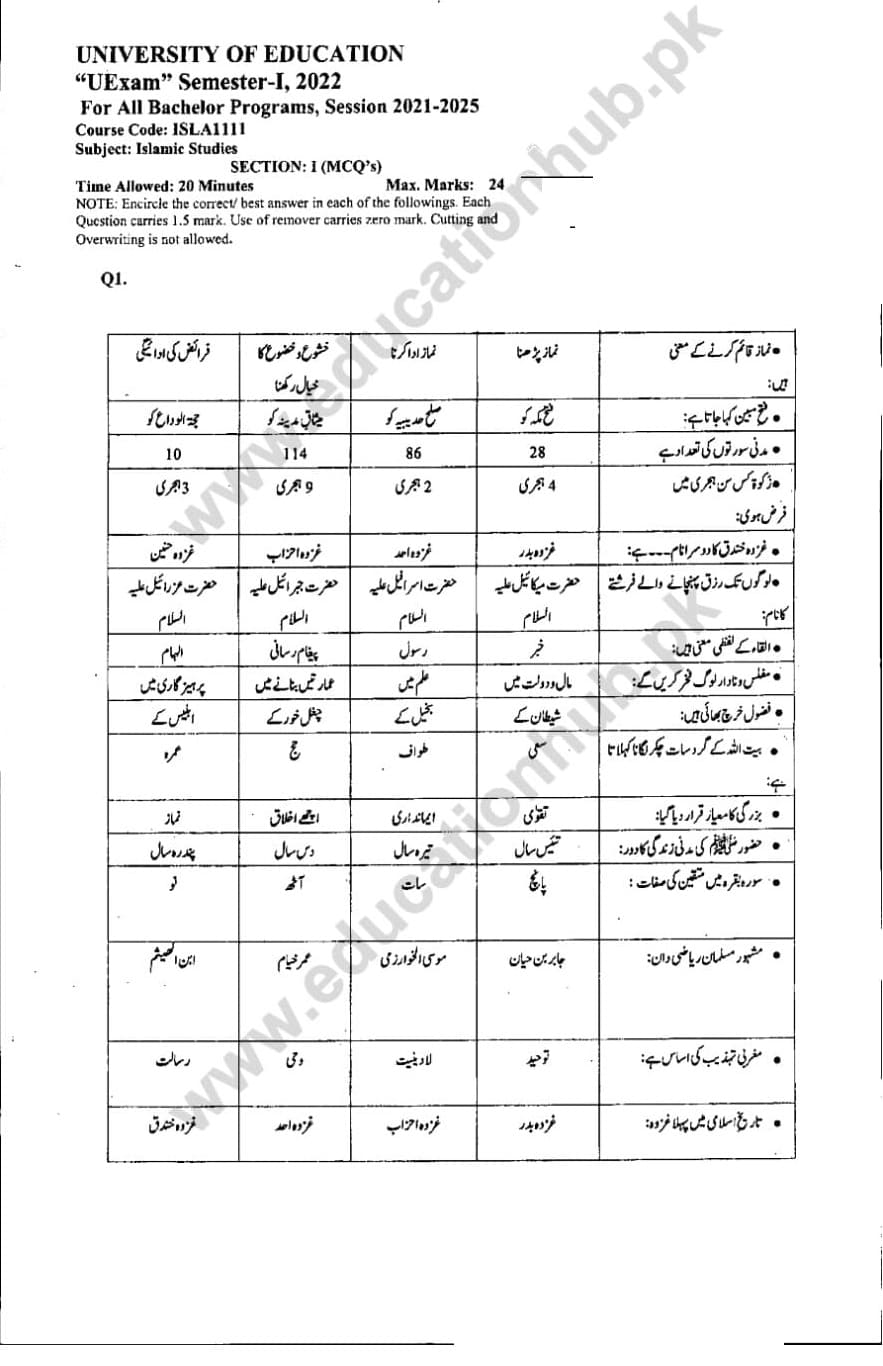 UNIVERSITY OF EDUCATION
“UExam” Semester-I, 2022
For All Bachelor Programs, Session 2021-2025
Course Code: ISLA1111
Subject: Islamic Studies
SECTION: I (MCQ’s)
Time Allowed: 20 Minutes Max. Marks: 24
NOTE: Encircle the correct/ best answer in each of the followings. Each
Question carries 1.5 mark. Use of remover carries zero mark. Cutting and
Overwriting is not allowed.
Q1.
• نماز قائم کرنے کے معنی نماز پڑھنا نماز ادا کرنا خشوع و خضوع کا فرائض کی ادائیگی
ہیں: خیال رکھنا
• فتح مبین کہا جاتا ہے: فتح مکہ کو صلح حدیبیہ کو میثاق مدینہ کو حجۃ الوداع کو
• مدنی سورتوں کی تعداد ہے 28 86 114 10
• زکوۃ کس سن ہجری میں 4 ہجری 2 ہجری 9 ہجری 3 ہجری
فرض ہوئی:
• غزوہ خندق کا دوسرا نام ----ہے: غزوہ بدر غزوہ احد غزوہ احزاب غزوہ حنین
• لوگوں تک رزق پہنچانے والے فرشتے حضرت میکائیل علیہ حضرت اسرافیل علیہ حضرت جبرائیل علیہ حضرت عزرائیل علیہ
کا نام: السلام السلام السلام السلام
• القاء کے لفظی معنی ہیں: خبر رسول پیغام رسانی الہام
• مفلس و نادار لوگ فخر کریں گے: مال و دولت میں علم میں عمارتیں بنانے میں پرہیز گاری میں
• فضول خرچ بھائی ہیں: شیطان کے بخیل کے چغل خور کے ابلیس کے
• بیت اللہ کے گرد سات چکر لگانا کہلاتا سعی طواف حج عمرہ
ہے:
• بزرگی کا معیار قرار دیا گیا: تقوٰی ایمانداری اچھے اخلاق نماز
• حضور ﷺ کی مدنی زندگی کا دور: تئیس سال تیرہ سال دس سال پندرہ سال
• سورہ بقرہ میں متقین کی صفات : پانچ سات آٹھ نو
• مشہور مسلمان ریاضی دان: جابر بن حیان موسی الخوارزمی عمر خیام ابن الھیثم
• مغربی تہذیب کی اساس ہے: توحید لادینیت وحی رسالت
• تاریخ اسلامی میں پہلا غزوہ: غزوہ بدر غزوہ احزاب غزوہ احد غزوہ خندق
www.educationhub.pk
www.educationhub.pk